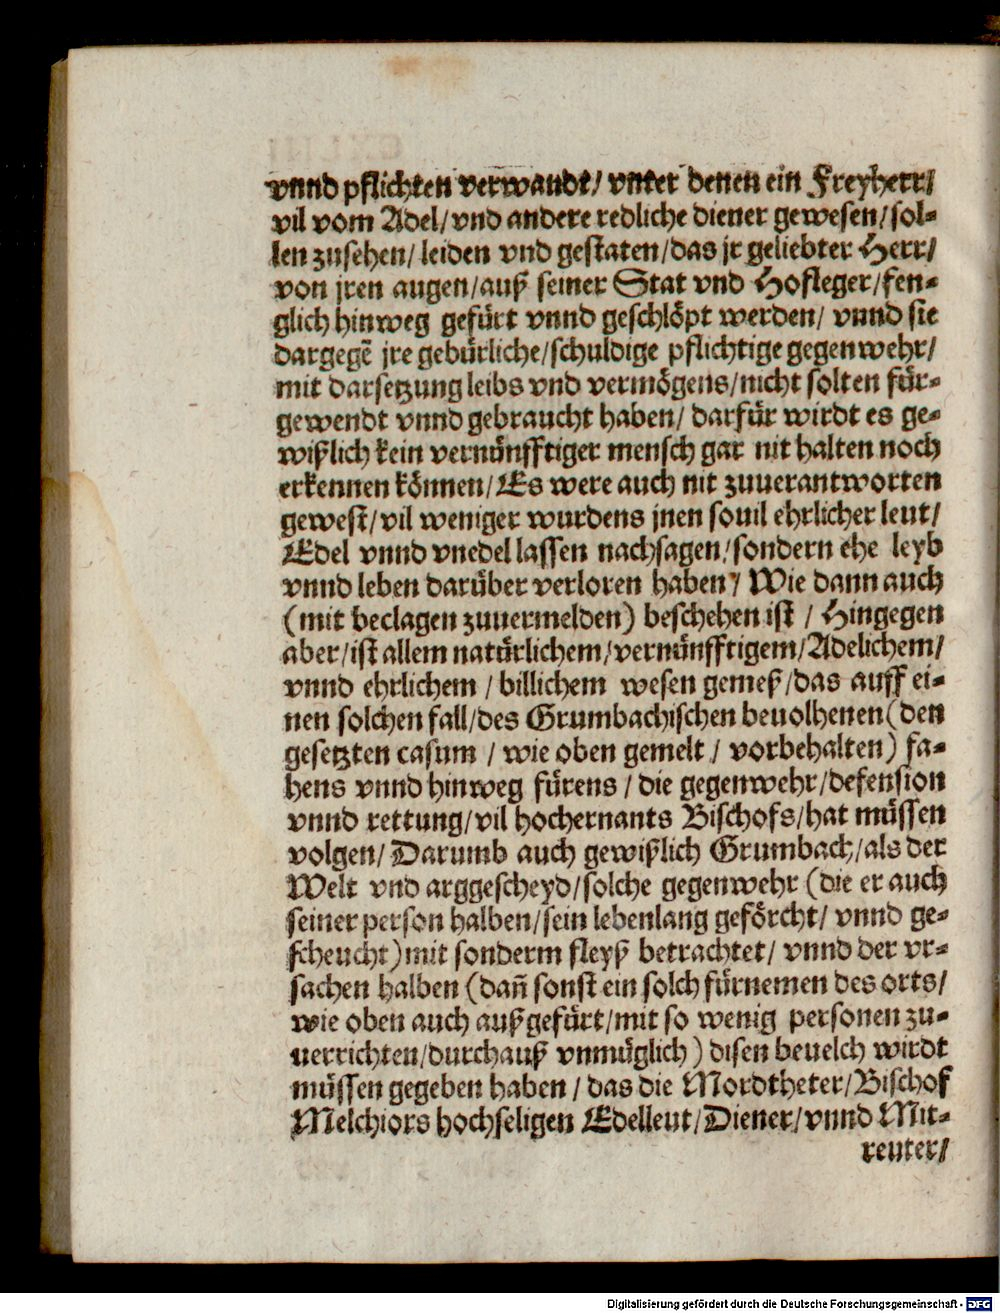 vnnd pflichten verwandt/ vnter denen ein Freyherr/
vil vom Adel/ vnd andere redliche diener gewesen/ sol⸗
len zusehen/ leiden vnd gestaten/ das jr geliebter Herr/
von jren augen/ auß seiner Stat vnd Hofleger/ fen⸗
glich hinweg gefürt vnnd geschlöpt werden/ vnnd sie
dargegẽ jre gebürliche/ schuldige pflichtige gegenwehr/
mit darsetzung leibs vnd vermögens/ nicht solten für⸗
gewendt vnnd gebraucht haben/ darfür wirdt es ge⸗
wißlich kein vernünfftiger mensch gar nit halten noch
erkennen können/ Es were auch nit zuuerantworten
gewest/ vil weniger wurdens jnen souil ehrlicher leut/
Edel vnnd vnedel lassen nachsagen/ sondern ehe leyb
vnnd leben darüber verloren haben/ Wie dann auch
(mit beclagen zuuermelden) beschehen ist / Hingegen
aber/ ist allem natürlichem/ vernünfftigem/ Adelichem/
vnnd ehrlichem / billichem wesen gemeß/ das auff ei⸗
nen solchen fall/ des Grumbachischen beuolhenen (den
gesetzten casum / wie oben gemelt / vorbehalten) fa⸗
hens vnnd hinweg fürens / die gegenwehr/ defension
vnnd rettung/ vil hochernants Bischofs/ hat müssen
volgen/ Darumb auch gewißlich Grumbach/ als der
Welt vnd arggescheyd/ solche gegenwehr (die er auch
seiner person halben/ sein lebenlang geförcht/ vnnd ge⸗
scheucht) mit sonderm fleyß betrachtet/ vnnd der vr⸗
sachen halben (dañ sonst ein solch fürnemen des orts/
wie oben auch außgefürt/ mit so wenig personen zu⸗
uerrichten/ durchauß vnmüglich) disen beuelch wirdt
müssen gegeben haben / das die Mordtheter/ Bischof
Melchiors hochseligen Edelleut/ Diener/ vnnd Mit⸗
reuter/
Digitalisierung gefördert durch die Deutsche Forschungsgemeinschaft - DFG